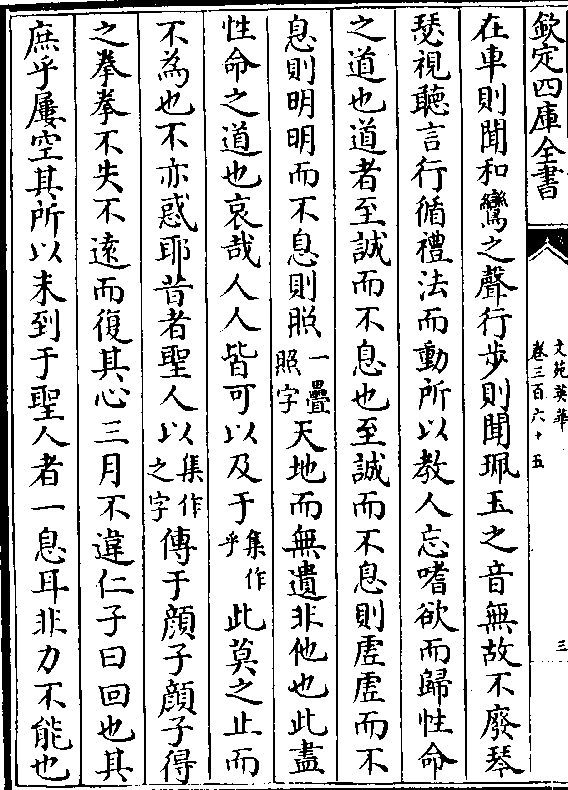 欽定四庫全書
文苑英華
卷三百六十五
三
在車則聞和鸞之聲行步則聞珮玉之音無故不廢琴
瑟視聽言行循禮法而動所以教人忘嗜欲而歸性命
之道也道者至誠而不息也至誠而不息則虛虛而不
息則明明而不息則照一疊照字天地而無遺非他也此盡
性命之道也哀哉人人皆可以及于集作乎此莫之止而
不為也不亦惑耶昔者聖人以集作之字傳于顔子顔子得
之拳拳不失不遠而復其心三月不違仁子曰回也其
庶乎屢空其所以未到于聖人者一息耳非力不能也